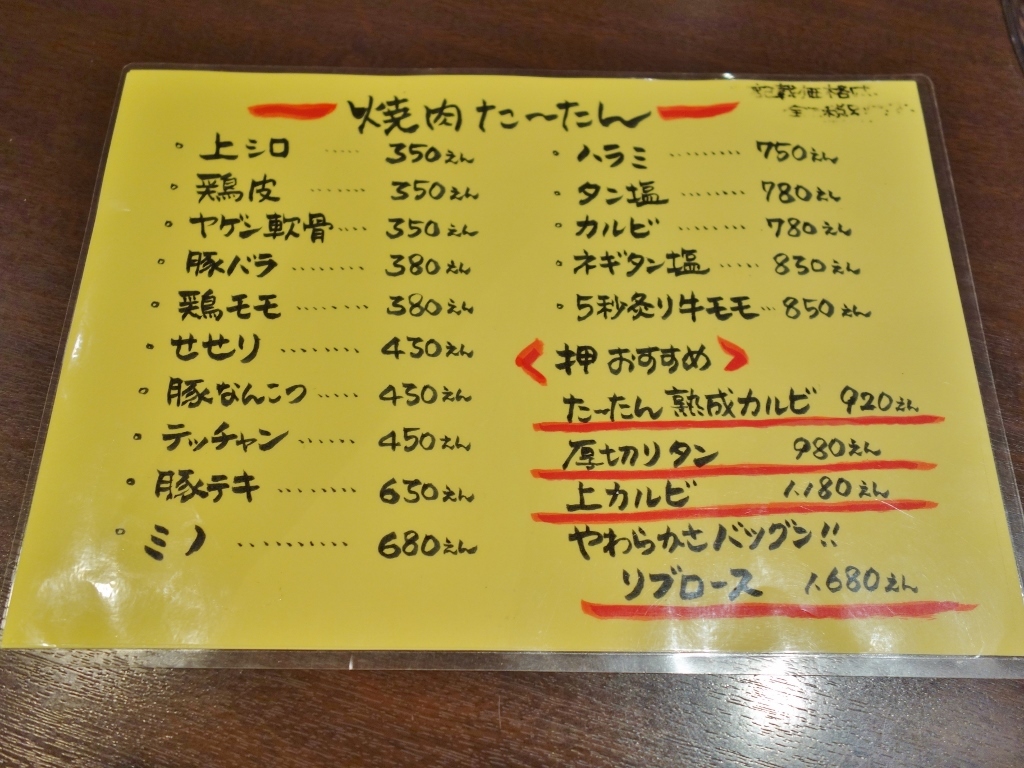 焼肉 た〜たん
記載価格は
全て税
・上シロ ..... 350えん
・鶏皮 ....... 350えん
・ヤゲン軟骨.... 350えん
・豚バラ ........ 380えん
・鶏モモ ........ 380えん
・せせり ........ 430えん
・豚なんこつ ..... 430えん
・テッチャン ...... 450えん
・豚テキ ........ 630えん
・ミノ .......... 680えん
・ハラミ ........ 750えん
・タン塩 ........ 780えん
・カルビ ........ 780えん
・ネギタン塩 ..... 830えん
・5秒炙り牛モモ... 850えん
く押 おすすめ>
た〜たん 熟成カルビ 920えん
厚切りタン 980えん
上カルビ 1,180えん
やわらかさバツグン!!
リブロース 1,680えん